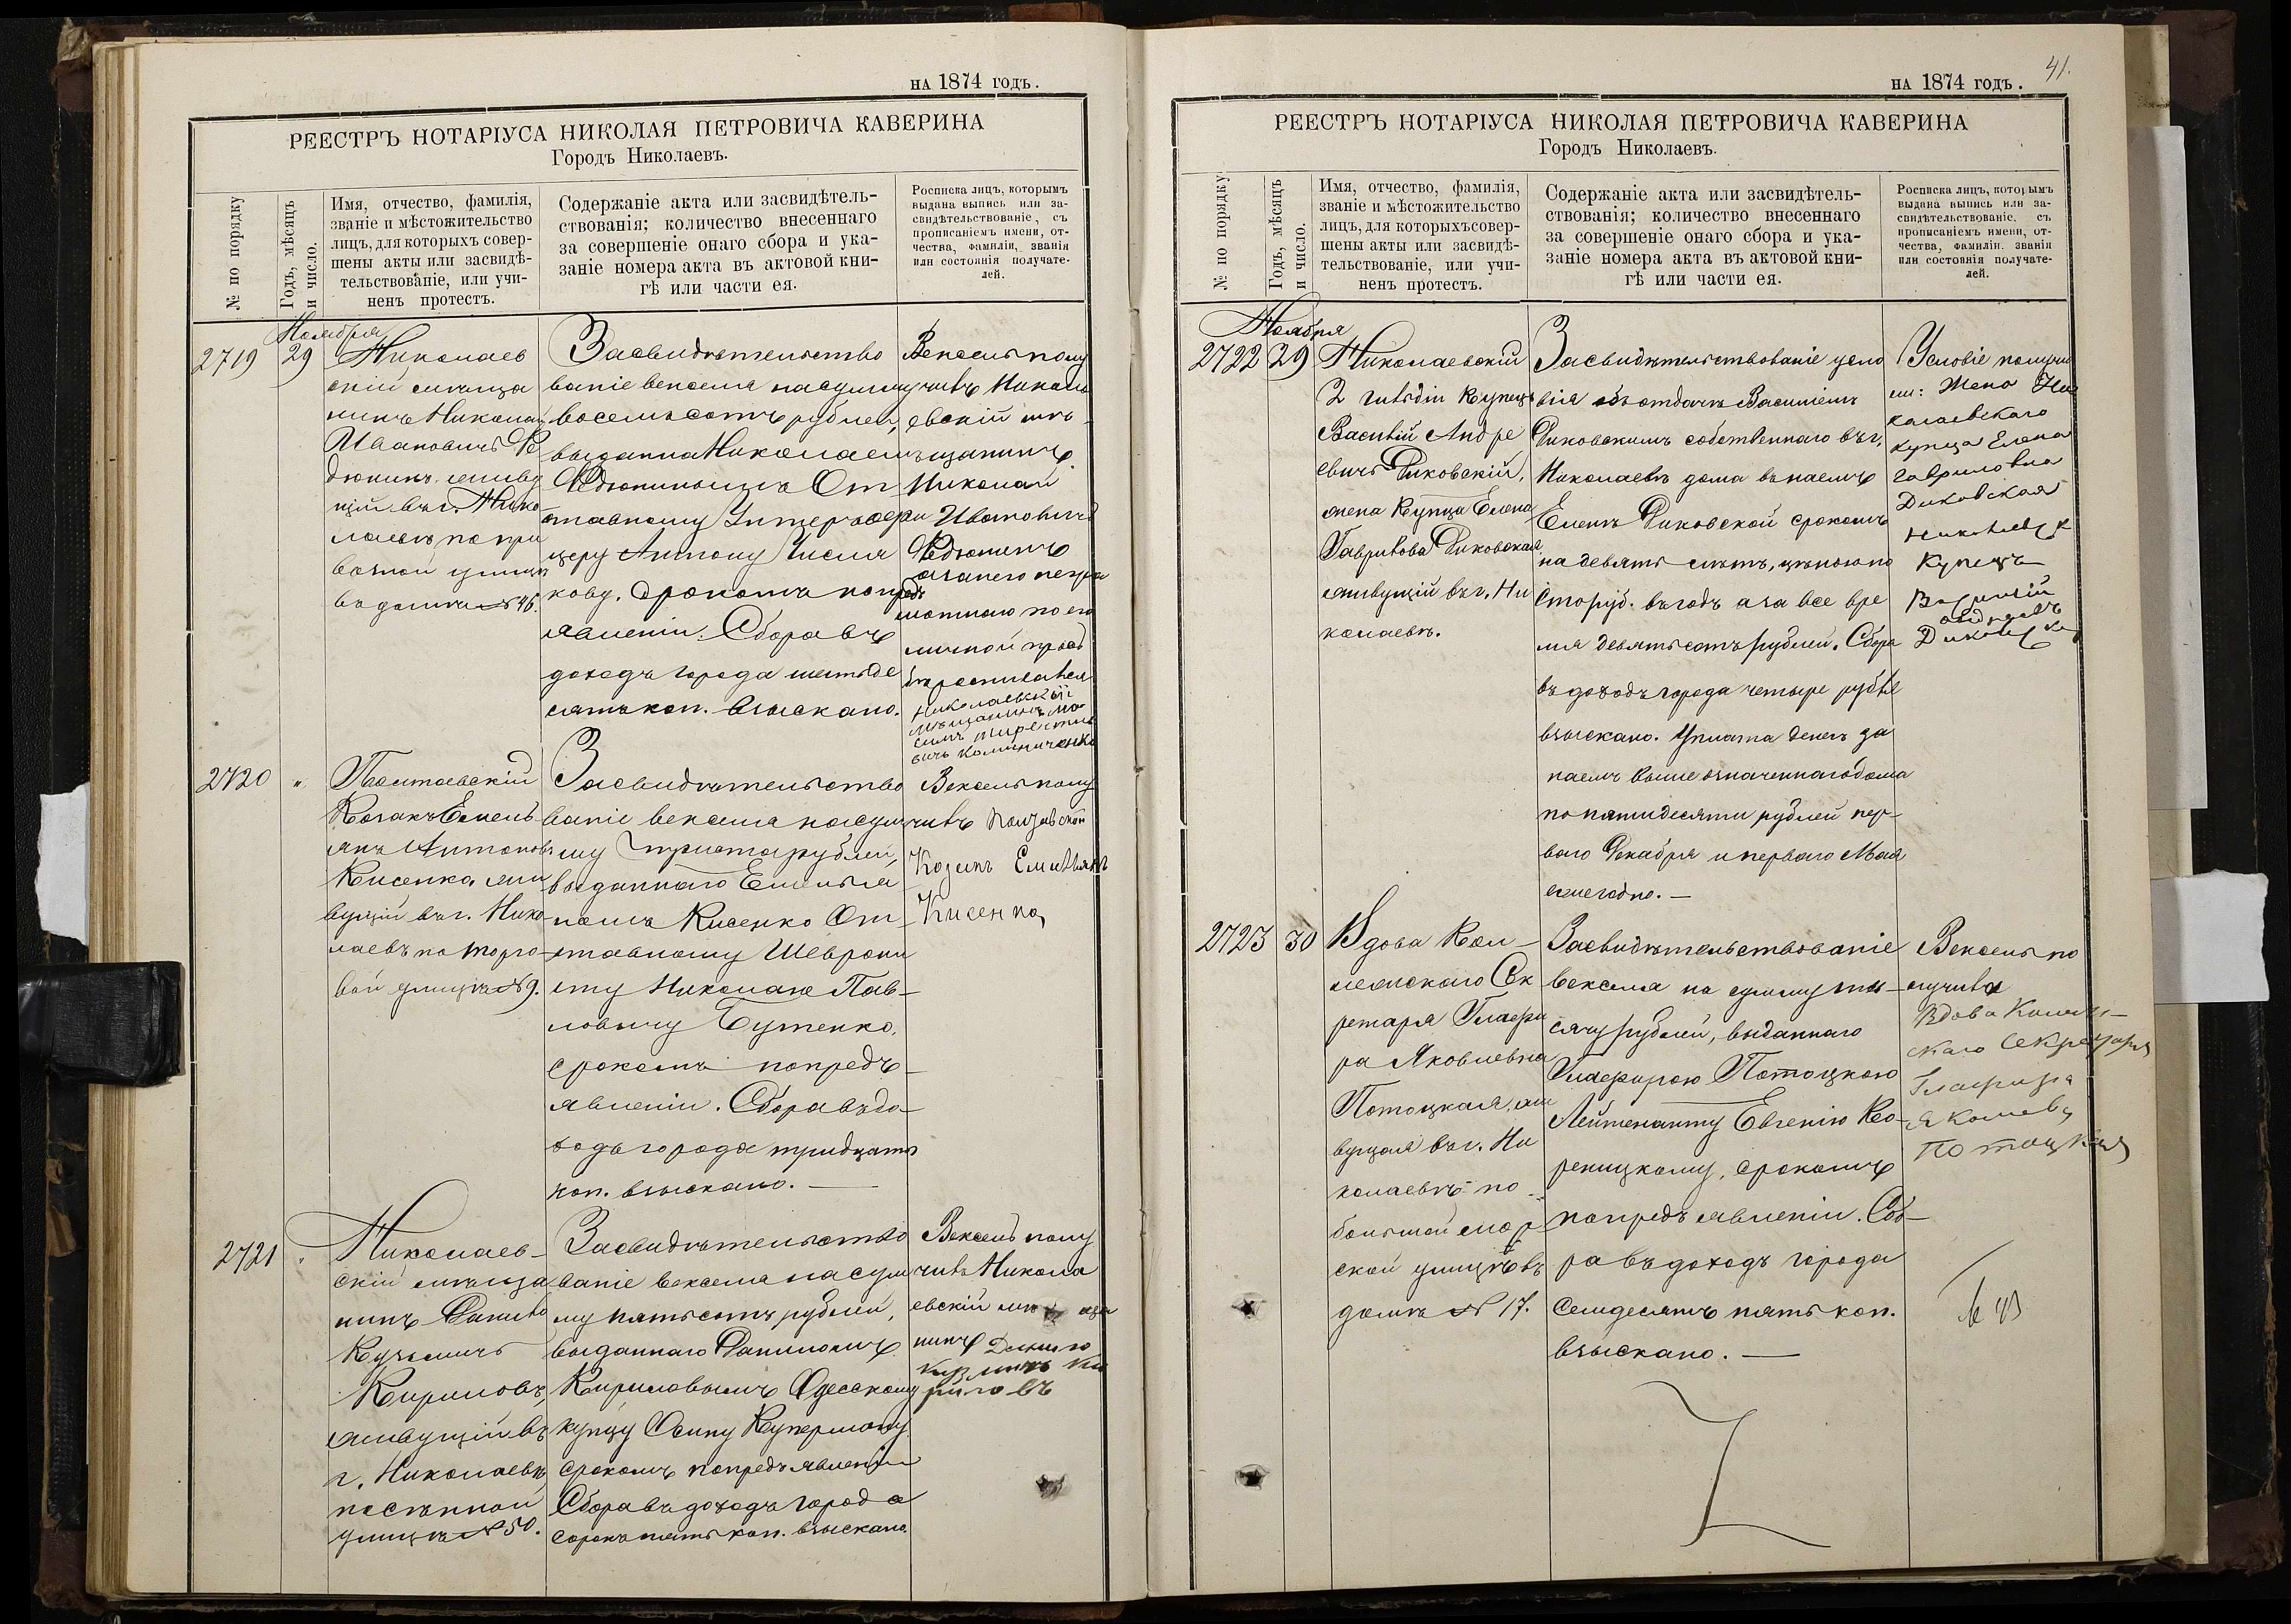 НА 1874 ГОДЪ.
РЕЕСТРЪ НОТАРІУСА НИКОЛАЯ ПЕТРОВИЧА КАВЕРИНА
Городъ Николаевъ.
№ по порядку
Годъ, мѣсяцъ
и число.
Имя, отчество, фамилія,
званіе и мѣстожительство
лицъ, для которыхъ совер-
шены акты или засвидѣ-
тельствованіе, или учи-
ненъ протестъ.
Содержаніе акта или засвидѣтель-
ствованія; количество внесеннаго
за совершеніе онаго сбора и ука-
заніе номера акта въ актовой кни-
гѣ или части ея.
Росписка лицъ, которымъ
выдана выпись или за-
свидѣтельствованіе, съ
прописаніемъ имени, от-
чества, фамиліи, званія
или состоянія получате-
лей.
Ноября
2719
29
Николаев
скій мѣща
нинъ Николай
Ивановичъ Ѳе
дюнинъ, живу
щій въ г. Нико
лаевѣ по при
возной улицѣ
въ домѣ № 46.
Засвидѣтельство
ваніе векселя на сумму
восемьсотъ рублей,
выданна Николаемъ
Ѳедюнинымъ От
ставному Унтеръ офи
церу Антону Числи
кову. Срокомъ попредъ
явленіи. Сбора въ
доходъ города шестьде
сятъ коп. взыскано.
Вексель полу
чилъ Никола
евскій мѣ
щанинъ
Николай
Ивановичъ
Ѳедюнинъ
а за него негра
мотнаго по его
личной прозь
бѣ росписался
Николаевскій
мѣщанинъ Ма
симъ
вичъ Калиниченко
2720
"
Полтавскій
Козакъ Емель
янъ Антоновъ
Кисенко, жи
вущій въ г. Нико
лаевѣ по торго
вой улицѣ № 9.
Засвидѣтельство
ваніе векселя на сум
му триста рублей,
выданнаго Емелья
номъ Кисенко От
ставному Шеврони
сту Николаю Пав-
ловичу Бутенко,
срокомъ попредъ-
явленіи. Сбора въ до-
ходъ города тридцать
коп. взыскано. —
Вексель полу
чилъ Полтавской
Козакъ Емелянъ
Кисенко
2721
"
Николаев-
скій мѣща
нинъ Данило
Кузьмичъ
Кириловъ,
живущій въ
г. Николаевѣ
по слѣпной
улицѣ № 50.
Засвидѣтельство
ваніе векселя на сум
му пятьсотъ рублей,
выданнаго Даниломъ
Кириловымъ Одесскому
купцу Осипу Куперману
срокомъ попредъявленіи
Сбора въ доходъ города
сорокъ пять коп. взыскано.
Вексель полу
чилъ Никола
евскій мѣща
нинъ Данило
Кузмичъ Ки
риловъ
41.
НА 1874 ГОДЪ.
РЕЕСТРЪ НОТАРІУСА НИКОЛАЯ ПЕТРОВИЧА КАВЕРИНА
Городъ Николаевъ.
№ по порядку
Годъ, мѣсяцъ
и число.
Имя, отчество, фамилія,
званіе и мѣстожительство
лицъ, для которыхъ совер-
шены акты или засвидѣ-
тельствованіе, или учи-
ненъ протестъ.
Содержаніе акта или засвидѣтель-
ствованія; количество внесеннаго
за совершеніе онаго сбора и ука-
заніе номера акта въ актовой кни-
гѣ или части ея.
Росписка лицъ, которымъ
выдана выпись или за-
свидѣтельствованіе, съ
прописаніемъ имени, от-
чества, фамиліи, званія
или состоянія получате-
лей.
Ноября
2722
29
Николаевскій
2 гильдіи Купецъ
Василій Андре
евичъ Диковскій,
жена Купца Елена
Гаврилова Диковская
живущій въ г. Ни
колаевѣ.
Засвидѣтельствованіе усло
вія объ отдачѣ Василіемъ
Диковскимъ собственнаго въ г.
Николаевѣ дома въ наемъ
Еленѣ Диковской срокомъ
на девять лѣтъ, цѣною по
сто руб. въ годъ а за все вре
мя девятьсотъ рублей. Сбора
въ доходъ города четыре рубля
взыскано. Уплата денегъ за
наемъ выше означеннаго дома
по пятидесяти рублей пер-
ваго Декабря и перваго Мая
ежегодно. —
Условіе получи
ли: Жена Ни
колаевскаго
купца Елена
Гавриловна
Диковская
Николаевск
Купецъ
Василій
Андреевъ
Диковск
2723
30
Вдова Кол-
лежскаго Сек
ретаря Глафи
ра Яковлевна
Потоцкая, жи
вущая въ г. Ни
колаевѣ по
большой мор
ской улицѣ въ
домѣ № 17.
Засвидѣтельствованіе
векселя на сумму ты-
сячу рублей, выданнаго
Глафирою Потоцкою
Лейтенанту Евгенію Ко-
реницкому, срокомъ
попредъявленіи. Сбо-
ра въ доходъ города
Семдесятъ пять коп.
взыскано. —
Вексель по
лучила
Вдова Колеж-
скаго Секретаря
Глафира
Яковлева
Потоцкая